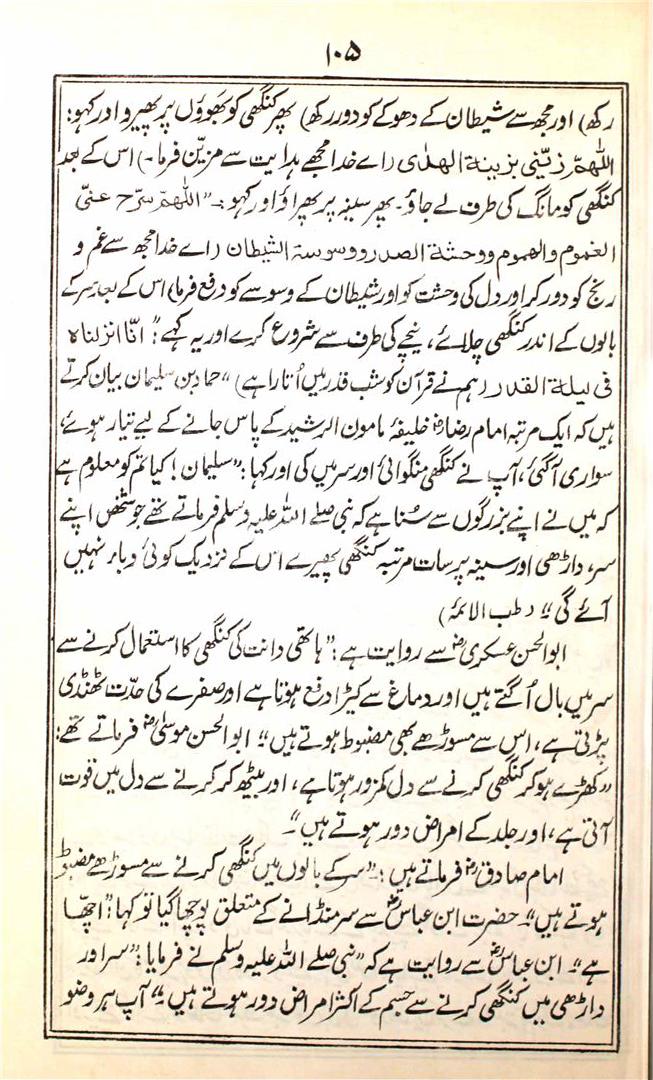 ۱۰۵
رکھ) اور مجھ سے شیطان کے دھوکے کو دور رکھ) پھر کنگھی کو بھوؤں پر پھیرو اور کہو:
اللّٰھمّ زیّنی بزینۃ الھلٰدی (اے خدا مجھے ہدایت سے مزیّن فرما۔) اس کے بعد
کنگھی کو مانگ کی طرف لے جاؤ۔ پھر سینہ پر پھراؤ اور کہو:۔ "اللّٰھمّ سرّح عنیّ
الغموم والھموم ووحشۃ الصدر ووسوسۃ الشیطان (اے خدا مجھ سے غم و
رنج کو دور کر اور دل کی وحشت کو اور شیطان کے وسوسے کو دفع فرما) اس کے بعد سر کے
بالوں کے اندر کنگھی چلائے، نیچے کی طرف سے شروع کرے اور یہ کہے: "انّا انزلناہ
فی لیلۃ القدر (ہم نے قرآن کو شب قدر میں اُتارا ہے) " حماد بن سلیمان بیان کرتے
ہیں کہ ایک مرتبہ امام رضاؓ خلیفۂ مامون الرشید کے پاس جانے کے لیے تیار ہوئے،
سواری آگئی، آپ نے کنگھی منگوائی اور سر میں کی اور کہا: "سلیمان! کیا تم کو معلوم ہے
کہ میں نے اپنے بزرگوں سے سُنا ہے کہ نبی صلے اللہ علیہ وسلم فرماتے تھے جو شخص اپنے
سر، داڑھی اور سینہ پر سات مرتبہ کنگھی پھیرے اس کے نزدیک کوئی وبا نہیں
آئے گی" (طب الائمۂ)
ابوالحسن عسکریؓ سے روایت ہے: "ہاتھی دانت کی کنگھی کا استعمال کرنے سے
سر میں بال اُگتے ہیں اور دماغ سے کیڑا دفع ہوتا ہے اور صفرے کی حدّت ٹھنڈی
پڑتی ہے، اس سے مسوڑھے بھی مضبوط ہوتے ہیں" ابوالحسن موسیٰؓ فرماتے تھے:
"کھڑے ہوکر کنگھی کرنے سے دل کمزور ہوتا ہے، اور بیٹھ کر کرنے سے دل میں قوت
آتی ہے، اور جلد کے امراض دور ہوتے ہیں"۔
امام صادقؓ فرماتے ہیں:۔ "سر کے بالوں میں کنگھی کرنے سے مسوڑھے مضبوط
ہوتے ہیں"۔ حضرت ابن عباسؓ سے سر منڈانے کے متعلق پوچھا گیا تو کہا: "اچھا
ہے"۔ ابن عباسؓ سے روایت ہے کہ "نبی صلے اللہ علیہ وسلم نے فرمایا: "سر اور
داڑھی میں کنگھی کرنے سے جسم کے اکثر امراض دور ہوتے ہیں"۔ آپ ہر وضو